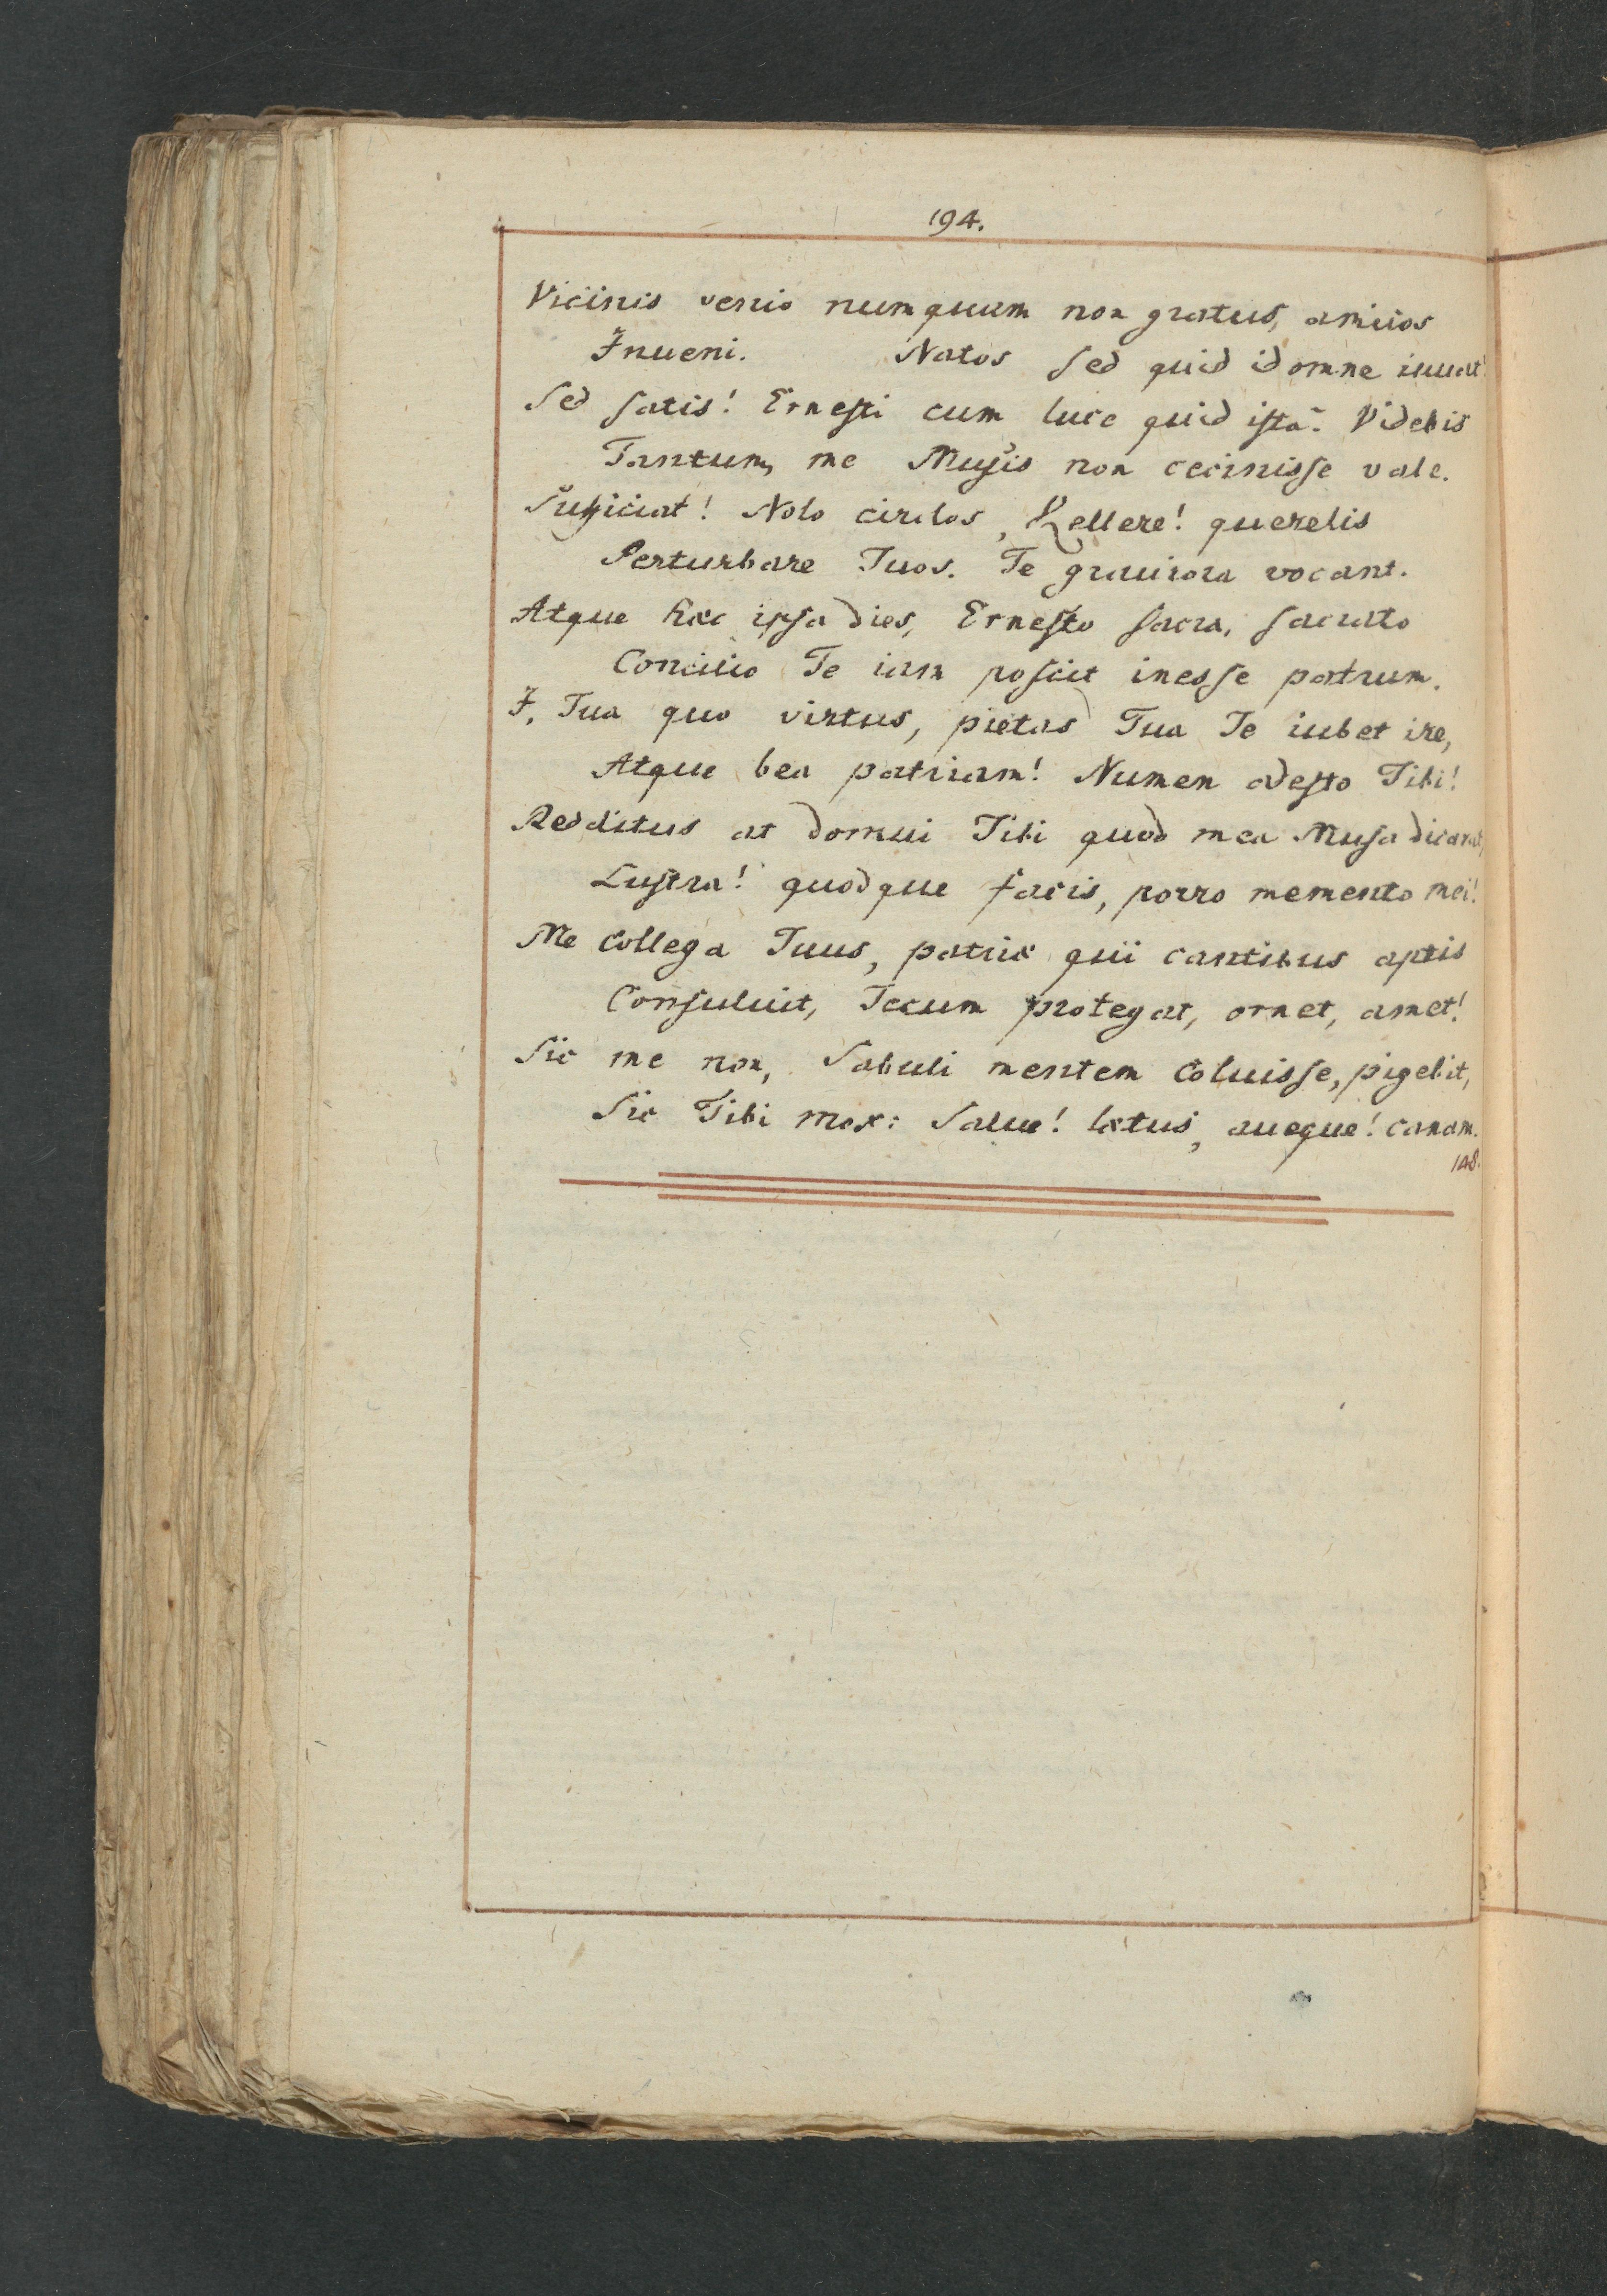 194.
Vicinis venio numquam non gratus, amicos
Inueni. Natos sed quid id omne iuuat?
Sed satis! Ernesti cum luce quid ista? Videbis
Tantum, me Musis non cecinisse vale.
Sufficiat! Nolo circlos, Kellere! querelis
Perturbare Tuos. Te grauiora vocant.
Atque hæc ipsa dies, Ernesto sacra, sacrato
Concilio Te iam poscit inesse patrum.
I, Tua quo virtus, pietas Tua Te iubet ire,
Atque bea patriam! Numen adesto Tibi!
Redditus at domui Tibi quod mea Musa dicarat,
Lustra! quodque facis, porro memento mei!
Me Collega Tuus, patriæ qui cantibus aptis
Consuluit, Tecum protegat, ornet, amet!
Sic me non, Sabuli mentem coluisse, pigebit,
Sic Tibi mox: Salue! lætus, aueque! canam.
148.